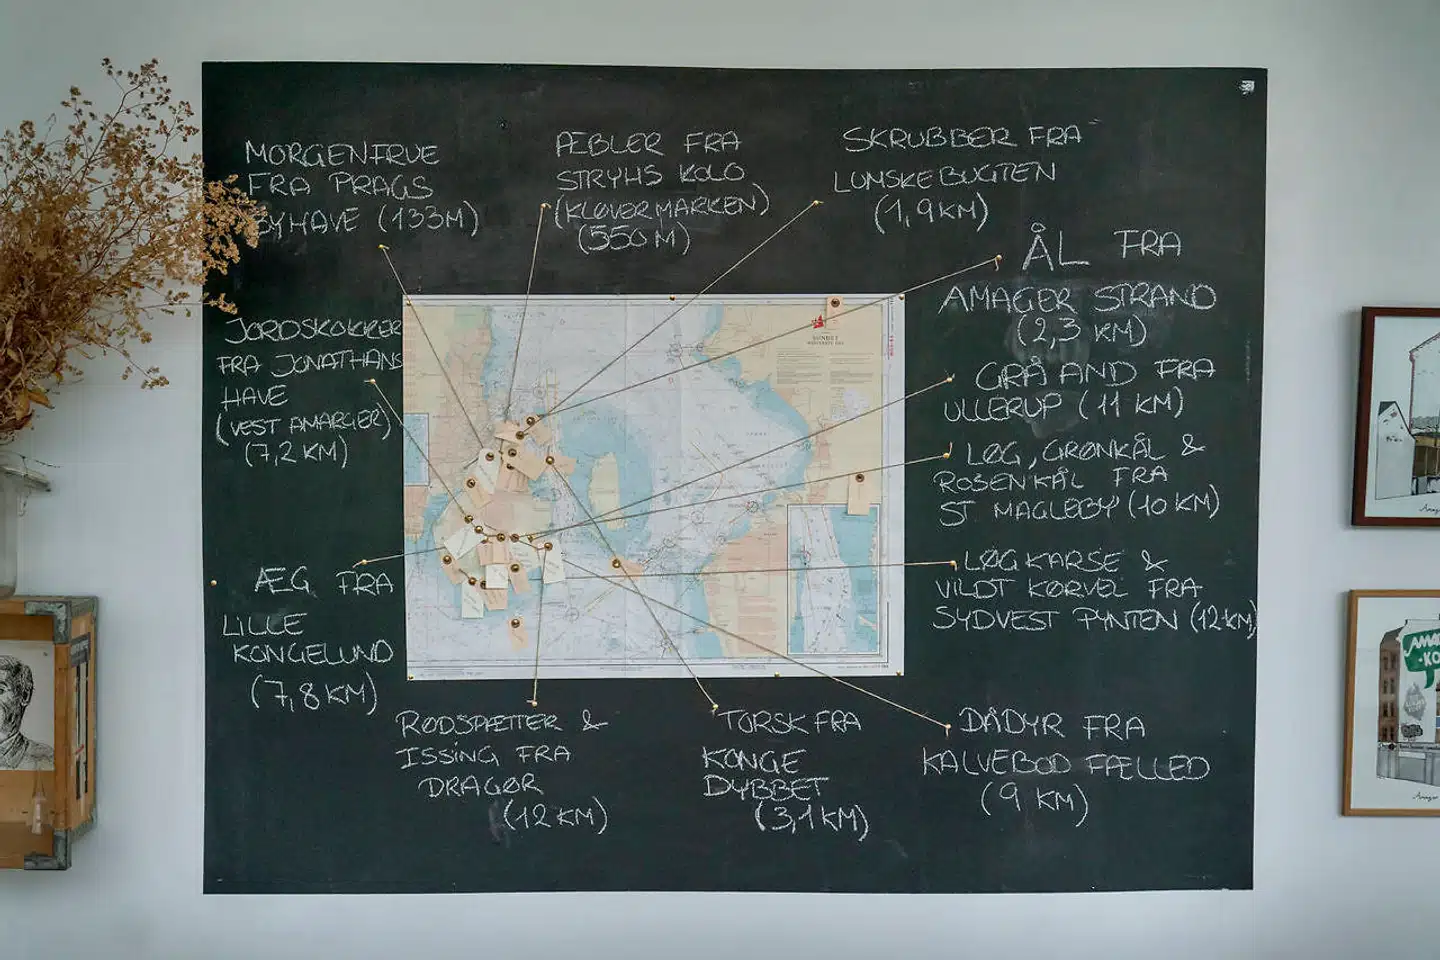 MORGENFRUE
FRA PRAGS
BYHAVE (133M)
ÆBLER FRA
STRYHS KOLO
(KLØVERMARKEN)
(550 M)
SKRUBBER FRA
LUMSKEBUGTEN
(1,9 KM)
ÅL FRA
AMAGER STRAND
(2,3 KM)
GRÅAND FRA
ULLERUP (11 KM)
LØG, GRØNKÅL &
ROSENKÅL FRA
ST MAGLEBY (10 KM)
LØGKARSE &
VILDT KØRVEL FRA
SYDVEST PYNTEN (12KM)
DÅDYR FRA
KALVEBOD FÆLLED
(9 KM)
TORSK FRA
KONGE
DYBBET
(3,1 KM)
RØDSPÆTTER &
ISSING FRA
DRAGØR
(12 KM)
ÆG FRA
LILLE
KONGELUND
(7,8 KM)
JORDSKOKKER
FRA JONATHANS
HAVE
(VEST AMAGER)
(7,2 KM)
SUNDET